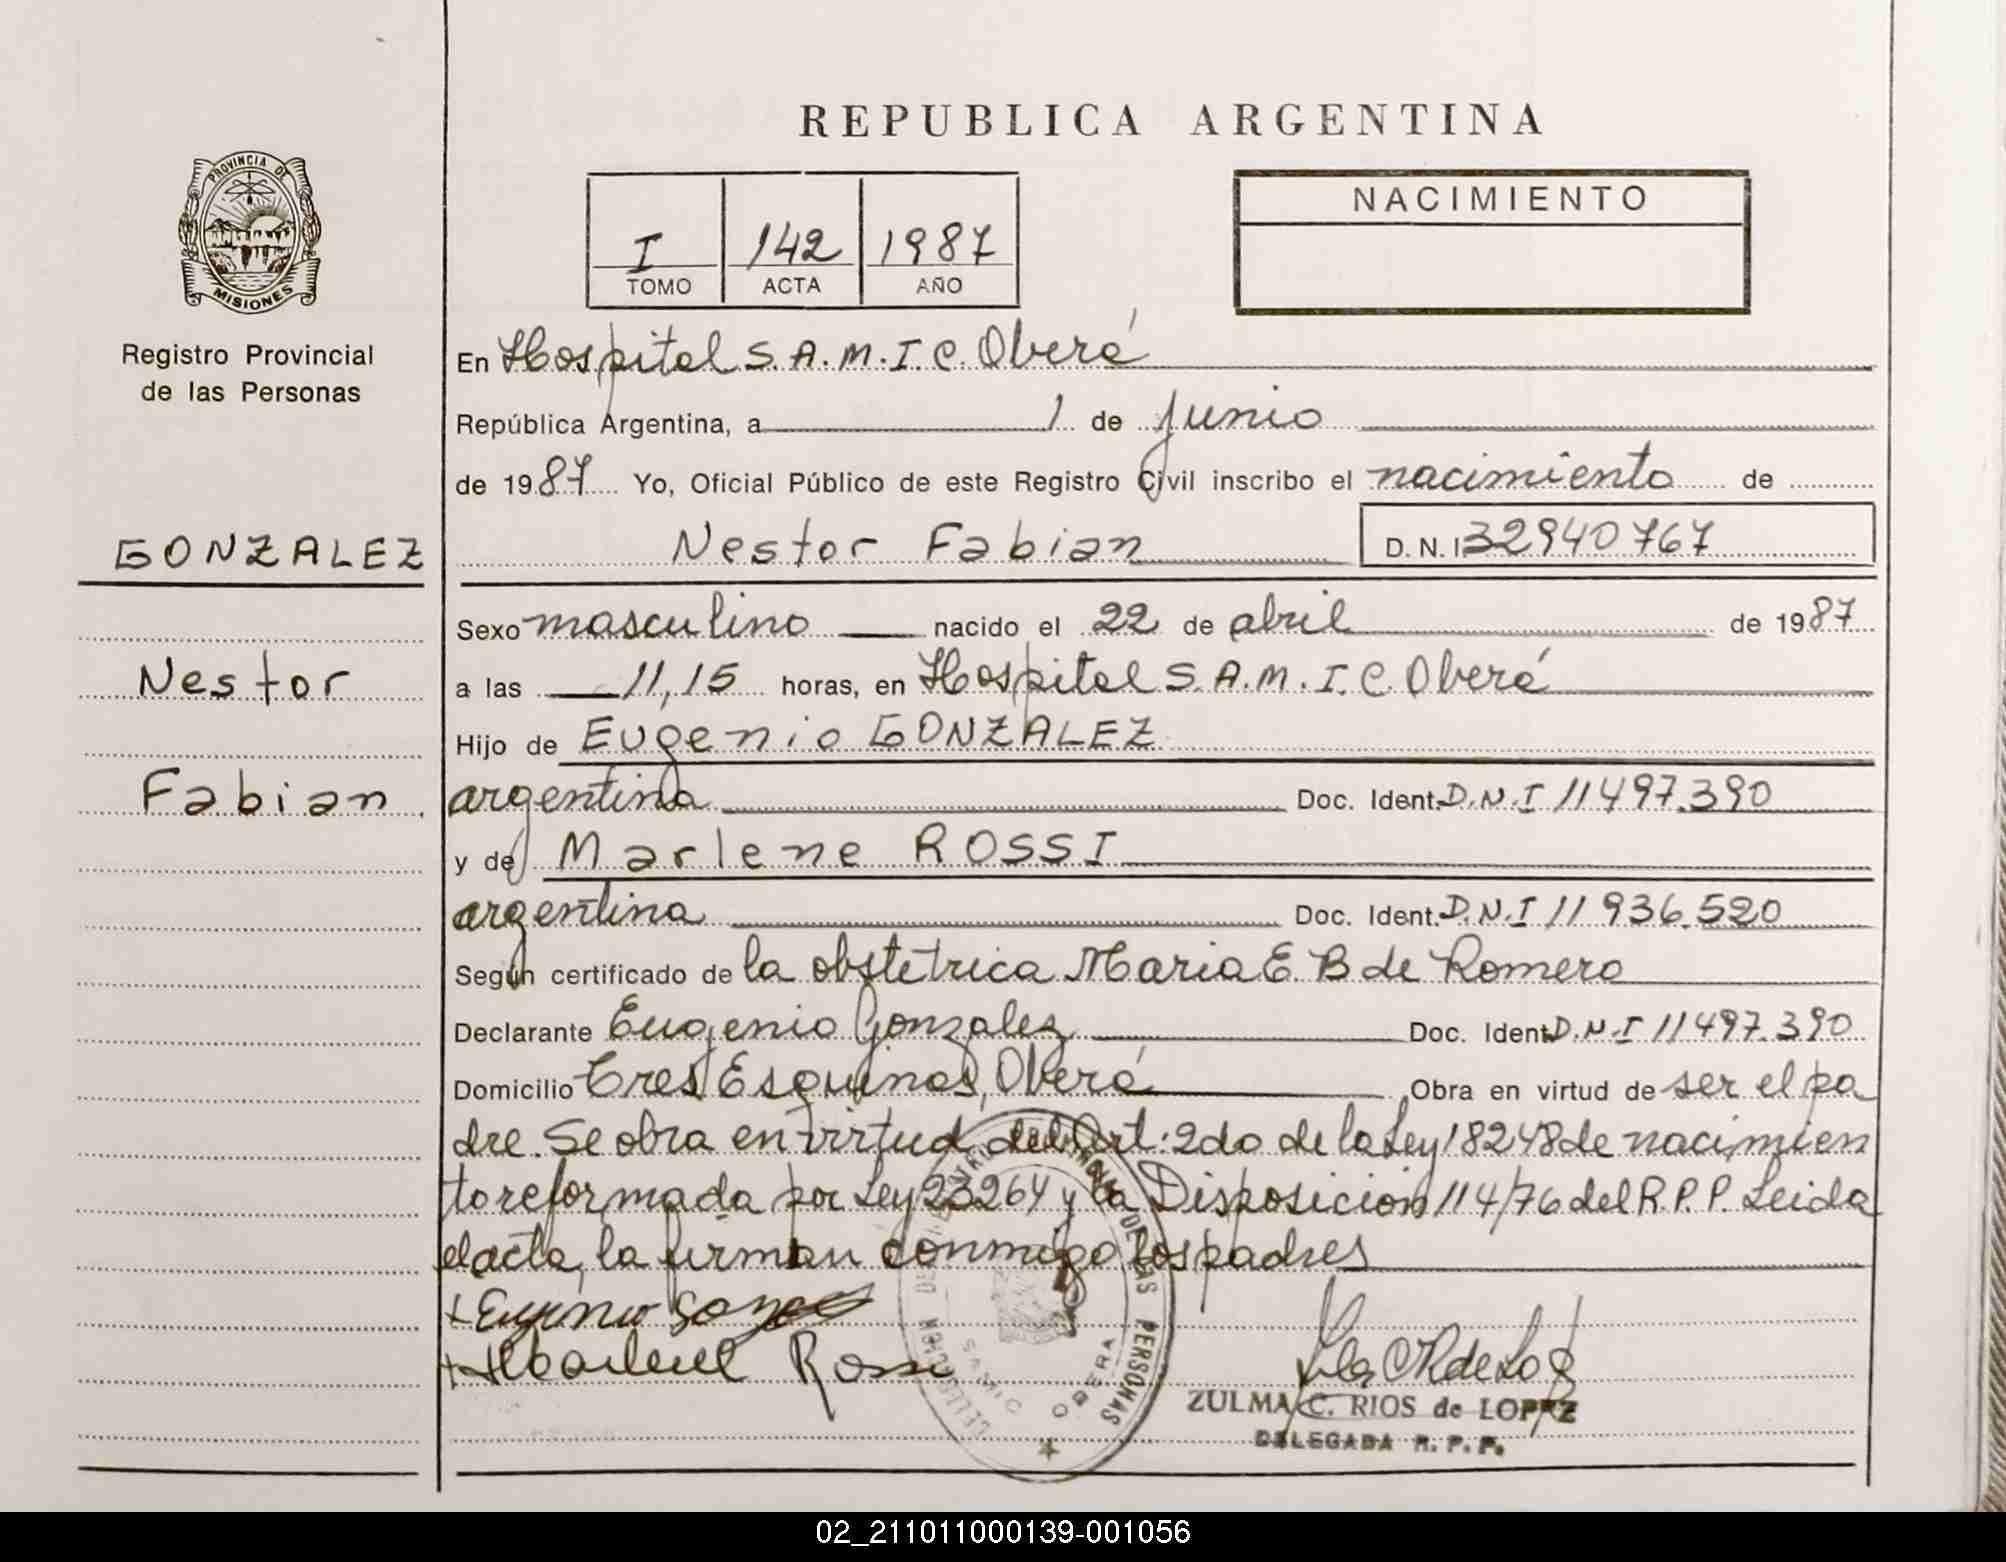 REPUBLICA ARGENTINA
PROVINCIA DE
MISIONES
Registro Provincial
de las Personas
GONZALEZ
Nestor
Fabian
I 142 1987
TOMO ACTA AÑO
NACIMIENTO
En Hospital S.A.M.I.C. Oberá
República Argentina, a 1 de Junio
de 1987 Yo, Oficial Público de este Registro Civil inscribo el nacimiento de
Nestor Fabian D.N.I 32940767
Sexo masculino nacido el 22 de abril de 1987
a las 11,15 horas, en Hospital S.A.M.I.C. Oberá
Hijo de Eugenio GONZALEZ
argentina Doc. Ident. D.N.I 11497.390
y de Marlene ROSSI
argentina Doc. Ident. D.N.I 11936.520
Según certificado de la obstetrica Maria E. B de Romero
Declarante Eugenio Gonzalez Doc. Ident. D.N.I 11497.390
Domicilio Tres Esquinas, Oberá Obra en virtud de ser el pa
dre. Se obra en virtud del Art: 2do de la Ley 18248 de nacimien
to reformada por Ley 23264 y la Disposición 114/76 del R.P.P. Leida
el acta, la firman conmigo los padres
Rossi
DE LAS PERSONAS
OBERA
ZULMA C. RIOS de LOPEZ
DELEGADA R. P. P.
02_211011000139-001056